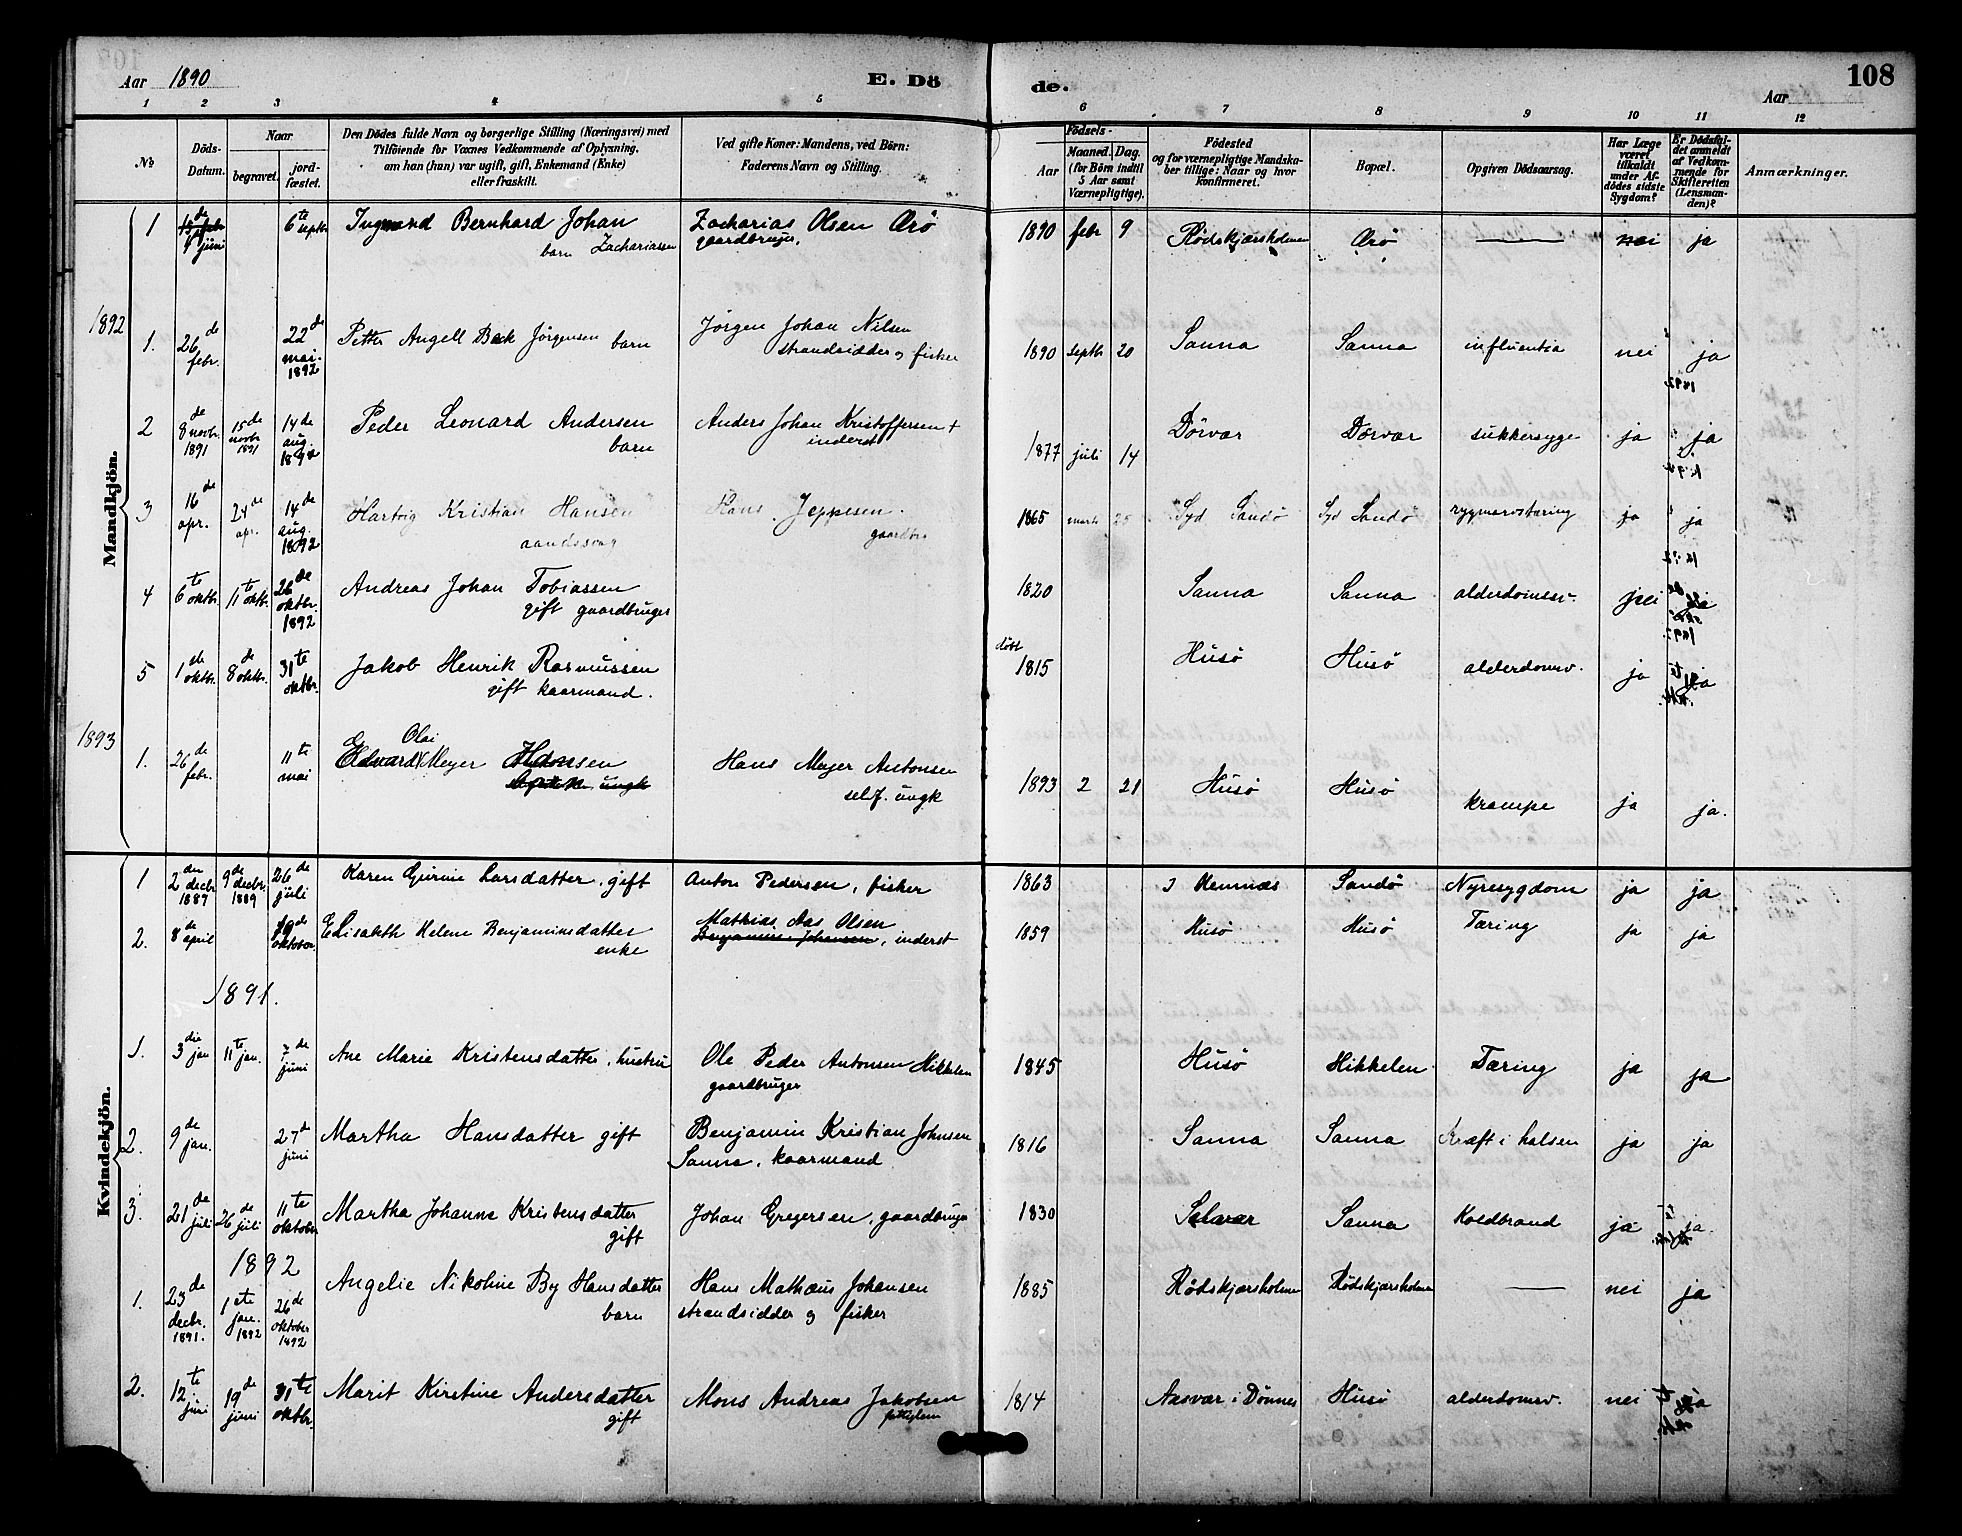 Aar 1890
E. Dö
de.
Aar
108
1 2 3 4 5 6 7 8 9 10 11 12
No
Döds-
Datum.
Naar
begravet.
jord-
fæstet.
Den Dödes fulde Navn og borgerlige Stilling (Næringsvei) med
Tilföiende for Voxnes Vedkommende af Oplysning,
om han (hun) var ugift, gift, Enkemand (Enke)
eller fraskilt.
Ved gifte Koner: Mandens, ved Börn:
Faderens Navn og Stilling.
Födsels-
Aar
Maaned. Dag.
(for Börn indtil
5 Aar samt
Værnepligtige).
Födested
og for værnepligtige Mandska-
ber tillige: Naar og hvor
konfirmeret.
Bopæl.
Opgiven Dödsaarsag.
Har Læge
været
tilkaldt
under Af-
dödes sidste
Sygdom?
Er Dödsfal-
det anmeldt
af Vedkom-
mende for
Skifteretten
(Lensman-
den)?
Anmærkninger.
Mandkjön.
1 de juni 6te septbr Ingmand Bernhard Johan Zacharias Olsen Ærö 1890 febr 9 Rödskjærsholmen Ærö — nei ja
barn Zachariassen gaardbruger.
1892
1. 26de febr. 22de mai. 1892 Petter Angell Back Jörgensen barn Jörgen Johan Nilsen 1890 septbr 20 Sanna Sanna influentia nei ja
strandsidder og fisker
2 8de novbr. 1891 15de novbr 1891 14de aug. 1892 Peder Leonard Andersen Anders Johan Kristoffersen + 1877 juli 14 Dörvær Dörvær sukkersyge ja ja
barn inderst
3 16de apr. 24de apr. 14de aug. 1892 Hartvig Kristian Hansen Hans Jeppesen. 1865 marts 25 Syd Sandö Syd Sandö rygmarvstæring ja ja
aandssvag gaardbr
4 6te oktbr. 11te oktbr. 26de oktbr. 1892 Andreas Johan Tobiassen 1820 Sanna Sanna alderdomssv. nei ja
gift gaardbruger
5 1de oktbr. 8de oktbr. 31te oktbr. Jakob Henrik Rasmussen döbt 1815 Husö Husö alderdomsv. ja ja
gift kaarmand.
1893
1. 26de febr. 11te mai Edvard Olai Meyer Hansen Hans Meyer Antonsen 1893 2 21 Husö Husö krampe ja ja.
ungk self. ungk
Kvindekjön.
1 2den decbr 1889 9de decbr. 1889 26de juli Karen Gurine Larsdatter, gift Anton Pedersen, fisker 1863 Hemnæs Sandö Nyresygdom ja ja
2. 8de april 19de oktober Elisabeth Helene Benjaminsdatter Mathias Aas Olsen 1859 Husö Husö Tæring ja ja
enke Benjamin Johansen, inderst
1891.
1. 3die jan 11te jan. 7de juni Ane Marie Kristensdatter, hustru Ole Peder Antonsen Hikkelen 1845 Husö Hikkelen Tæring ja ja
gaardbruger
2. 9de jan. 27de juni Martha Hansdatter gift Benjamin Kristian Johnsen 1816 Sanna Sanna Kræft i halsen ja ja
Sanna, kaarmand
3. 21de juli 26de juli 11te oktober Martha Johanna Kristensdatter Johan Gregersen, gaardbruger 1830 Selvær Sanna Koldbrand ja ja.
gift
1892
1. 23de decbr. 1891. 1ste jan. 1892 26de oktober 1892 Angelie Nikoline By Hansdatter Hans Mathæus Johansen 1885 Rödskjærsholmen Rödskjærsholmen — nei ja
barn strandsidder og fisker
2. 12te juni 19de juni 31te oktbr. Marit Kirstine Andersdatter Mons Andreas Jakobsen 1814 Aasvær i Dönnes Husö alderdomsv. nei ja
gift fattiglem